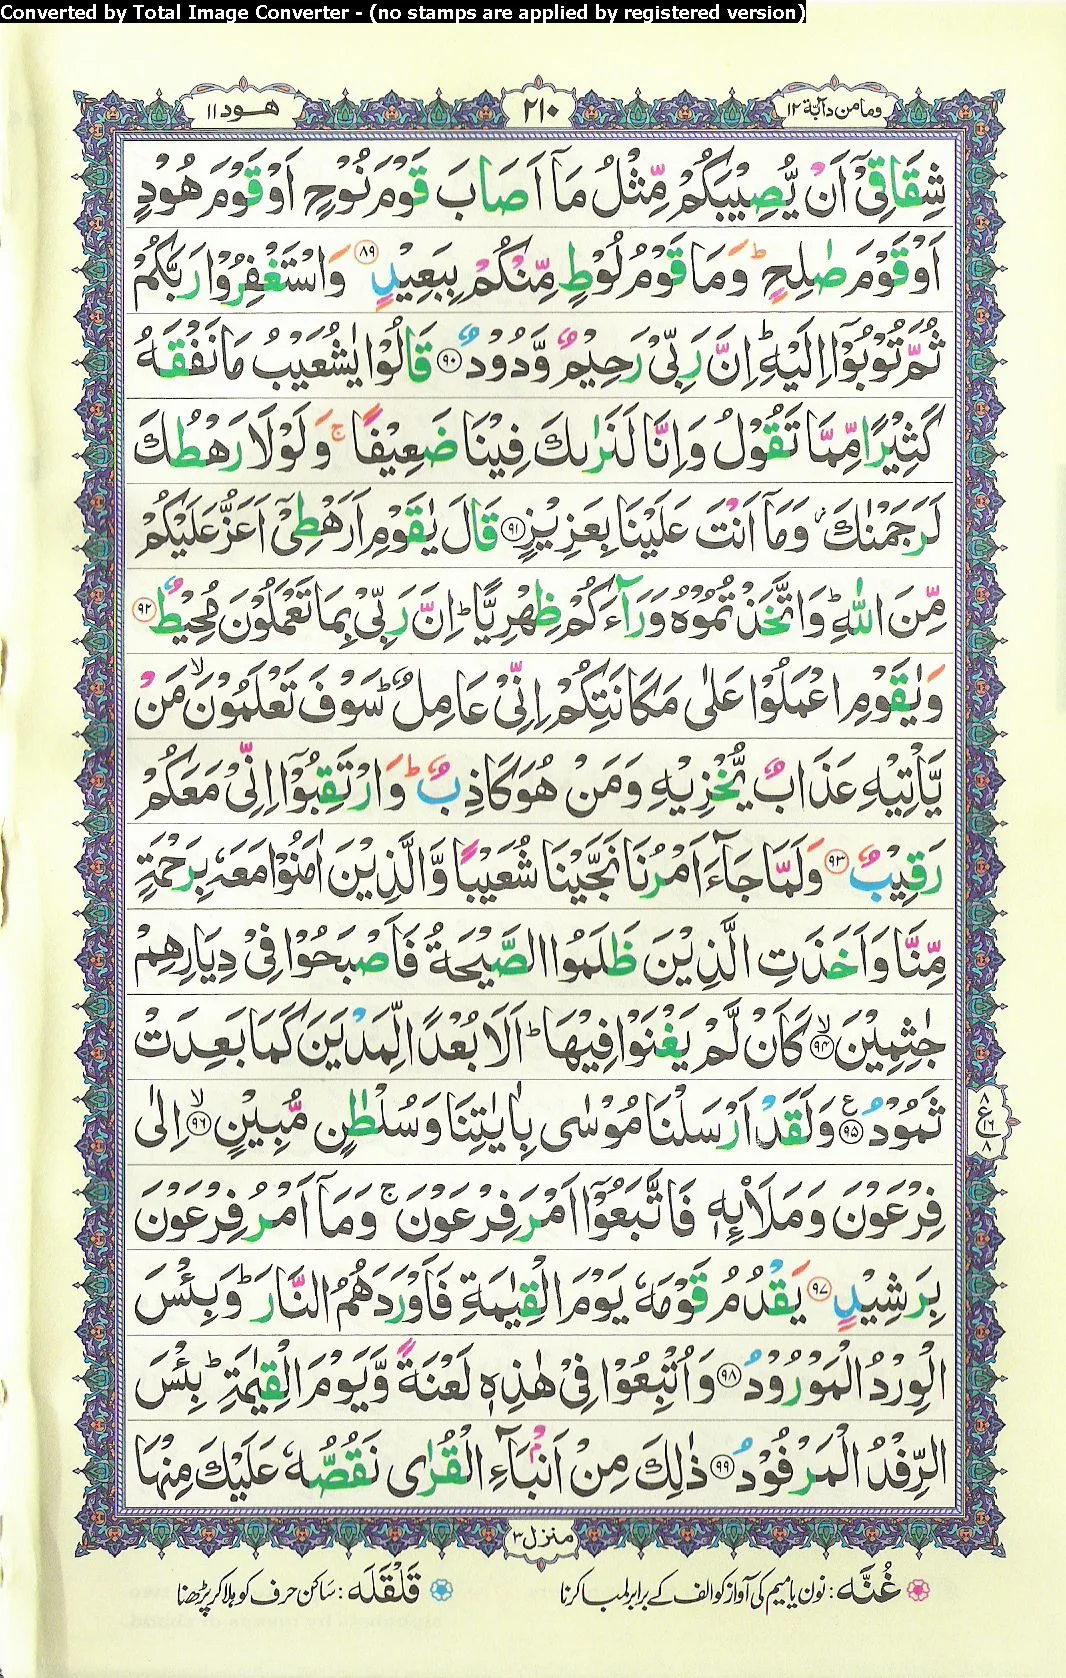 Converted by Total Image Converter - (no stamps are applied by registered version)
وما من دآبة ١٢
٢١٠
هود ١١
شِقَاقِیْۤ اَنْ یُّصِیْبَكُمْ مِّثْلُ مَاۤ اَصَابَ قَوْمَ نُوْحٍ اَوْ قَوْمَ هُوْدٍ
اَوْ قَوْمَ صٰلِحٍ ؕ وَمَا قَوْمُ لُوْطٍ مِّنْكُمْ بِبَعِیْدٍ ﴿۸۹﴾ وَاسْتَغْفِرُوْا رَبَّكُمْ
ثُمَّ تُوْبُوْۤا اِلَیْهِ ؕ اِنَّ رَبِّیْ رَحِیْمٌ وَّدُوْدٌ ﴿۹۰﴾ قَالُوْا یٰشُعَیْبُ مَا نَفْقَهُ
كَثِیْرًا مِّمَّا تَقُوْلُ وَاِنَّا لَنَرٰىكَ فِیْنَا ضَعِیْفًا ۚ وَلَوْلَا رَهْطُكَ
لَرَجَمْنٰكَ ؗ وَمَاۤ اَنْتَ عَلَیْنَا بِعَزِیْزٍ ﴿۹۱﴾ قَالَ یٰقَوْمِ اَرَهْطِیْۤ اَعَزُّ عَلَیْكُمْ
مِّنَ اللّٰهِ ؕ وَاتَّخَذْتُمُوْهُ وَرَآءَكُمْ ظِهْرِیًّا ؕ اِنَّ رَبِّیْ بِمَا تَعْمَلُوْنَ مُحِیْطٌ ﴿۹۲﴾
وَیٰقَوْمِ اعْمَلُوْا عَلٰی مَكَانَتِكُمْ اِنِّیْ عَامِلٌ ؕ سَوْفَ تَعْلَمُوْنَ ۙ مَنْ
یَّاْتِیْهِ عَذَابٌ یُّخْزِیْهِ وَمَنْ هُوَ كَاذِبٌ ؕ وَارْتَقِبُوْۤا اِنِّیْ مَعَكُمْ
رَقِیْبٌ ﴿۹۳﴾ وَلَمَّا جَآءَ اَمْرُنَا نَجَّیْنَا شُعَیْبًا وَّالَّذِیْنَ اٰمَنُوْا مَعَهٗ بِرَحْمَةٍ
مِّنَّا وَاَخَذَتِ الَّذِیْنَ ظَلَمُوا الصَّیْحَةُ فَاَصْبَحُوْا فِیْ دِیَارِهِمْ
جٰثِمِیْنَ ۙ﴿۹۴﴾ كَاَنْ لَّمْ یَغْنَوْا فِیْهَا ؕ اَلَا بُعْدًا لِّمَدْیَنَ كَمَا بَعِدَتْ
ثَمُوْدُ ﴿۹۵﴾ ع وَلَقَدْ اَرْسَلْنَا مُوْسٰی بِاٰیٰتِنَا وَسُلْطٰنٍ مُّبِیْنٍ ۙ﴿۹۶﴾ اِلٰی
٨ ع ١٢ ٨
فِرْعَوْنَ وَمَلَاۡئِهٖ فَاتَّبَعُوْۤا اَمْرَ فِرْعَوْنَ ۚ وَمَاۤ اَمْرُ فِرْعَوْنَ
بِرَشِیْدٍ ﴿۹۷﴾ یَقْدُمُ قَوْمَهٗ یَوْمَ الْقِیٰمَةِ فَاَوْرَدَهُمُ النَّارَ ؕ وَبِئْسَ
الْوِرْدُ الْمَوْرُوْدُ ﴿۹۸﴾ وَاُتْبِعُوْا فِیْ هٰذِهٖ لَعْنَةً وَّیَوْمَ الْقِیٰمَةِ ؕ بِئْسَ
الرِّفْدُ الْمَرْفُوْدُ ﴿۹۹﴾ ذٰلِكَ مِنْ اَنْۢبَآءِ الْقُرٰی نَقُصُّهٗ عَلَیْكَ مِنْهَا
منزل ٣
غُنَّه : نون یا میم کی آواز کو الف کے برابر لمبا کرنا
قَلْقَلَه : ساکن حرف کو ہلا کر پڑھنا